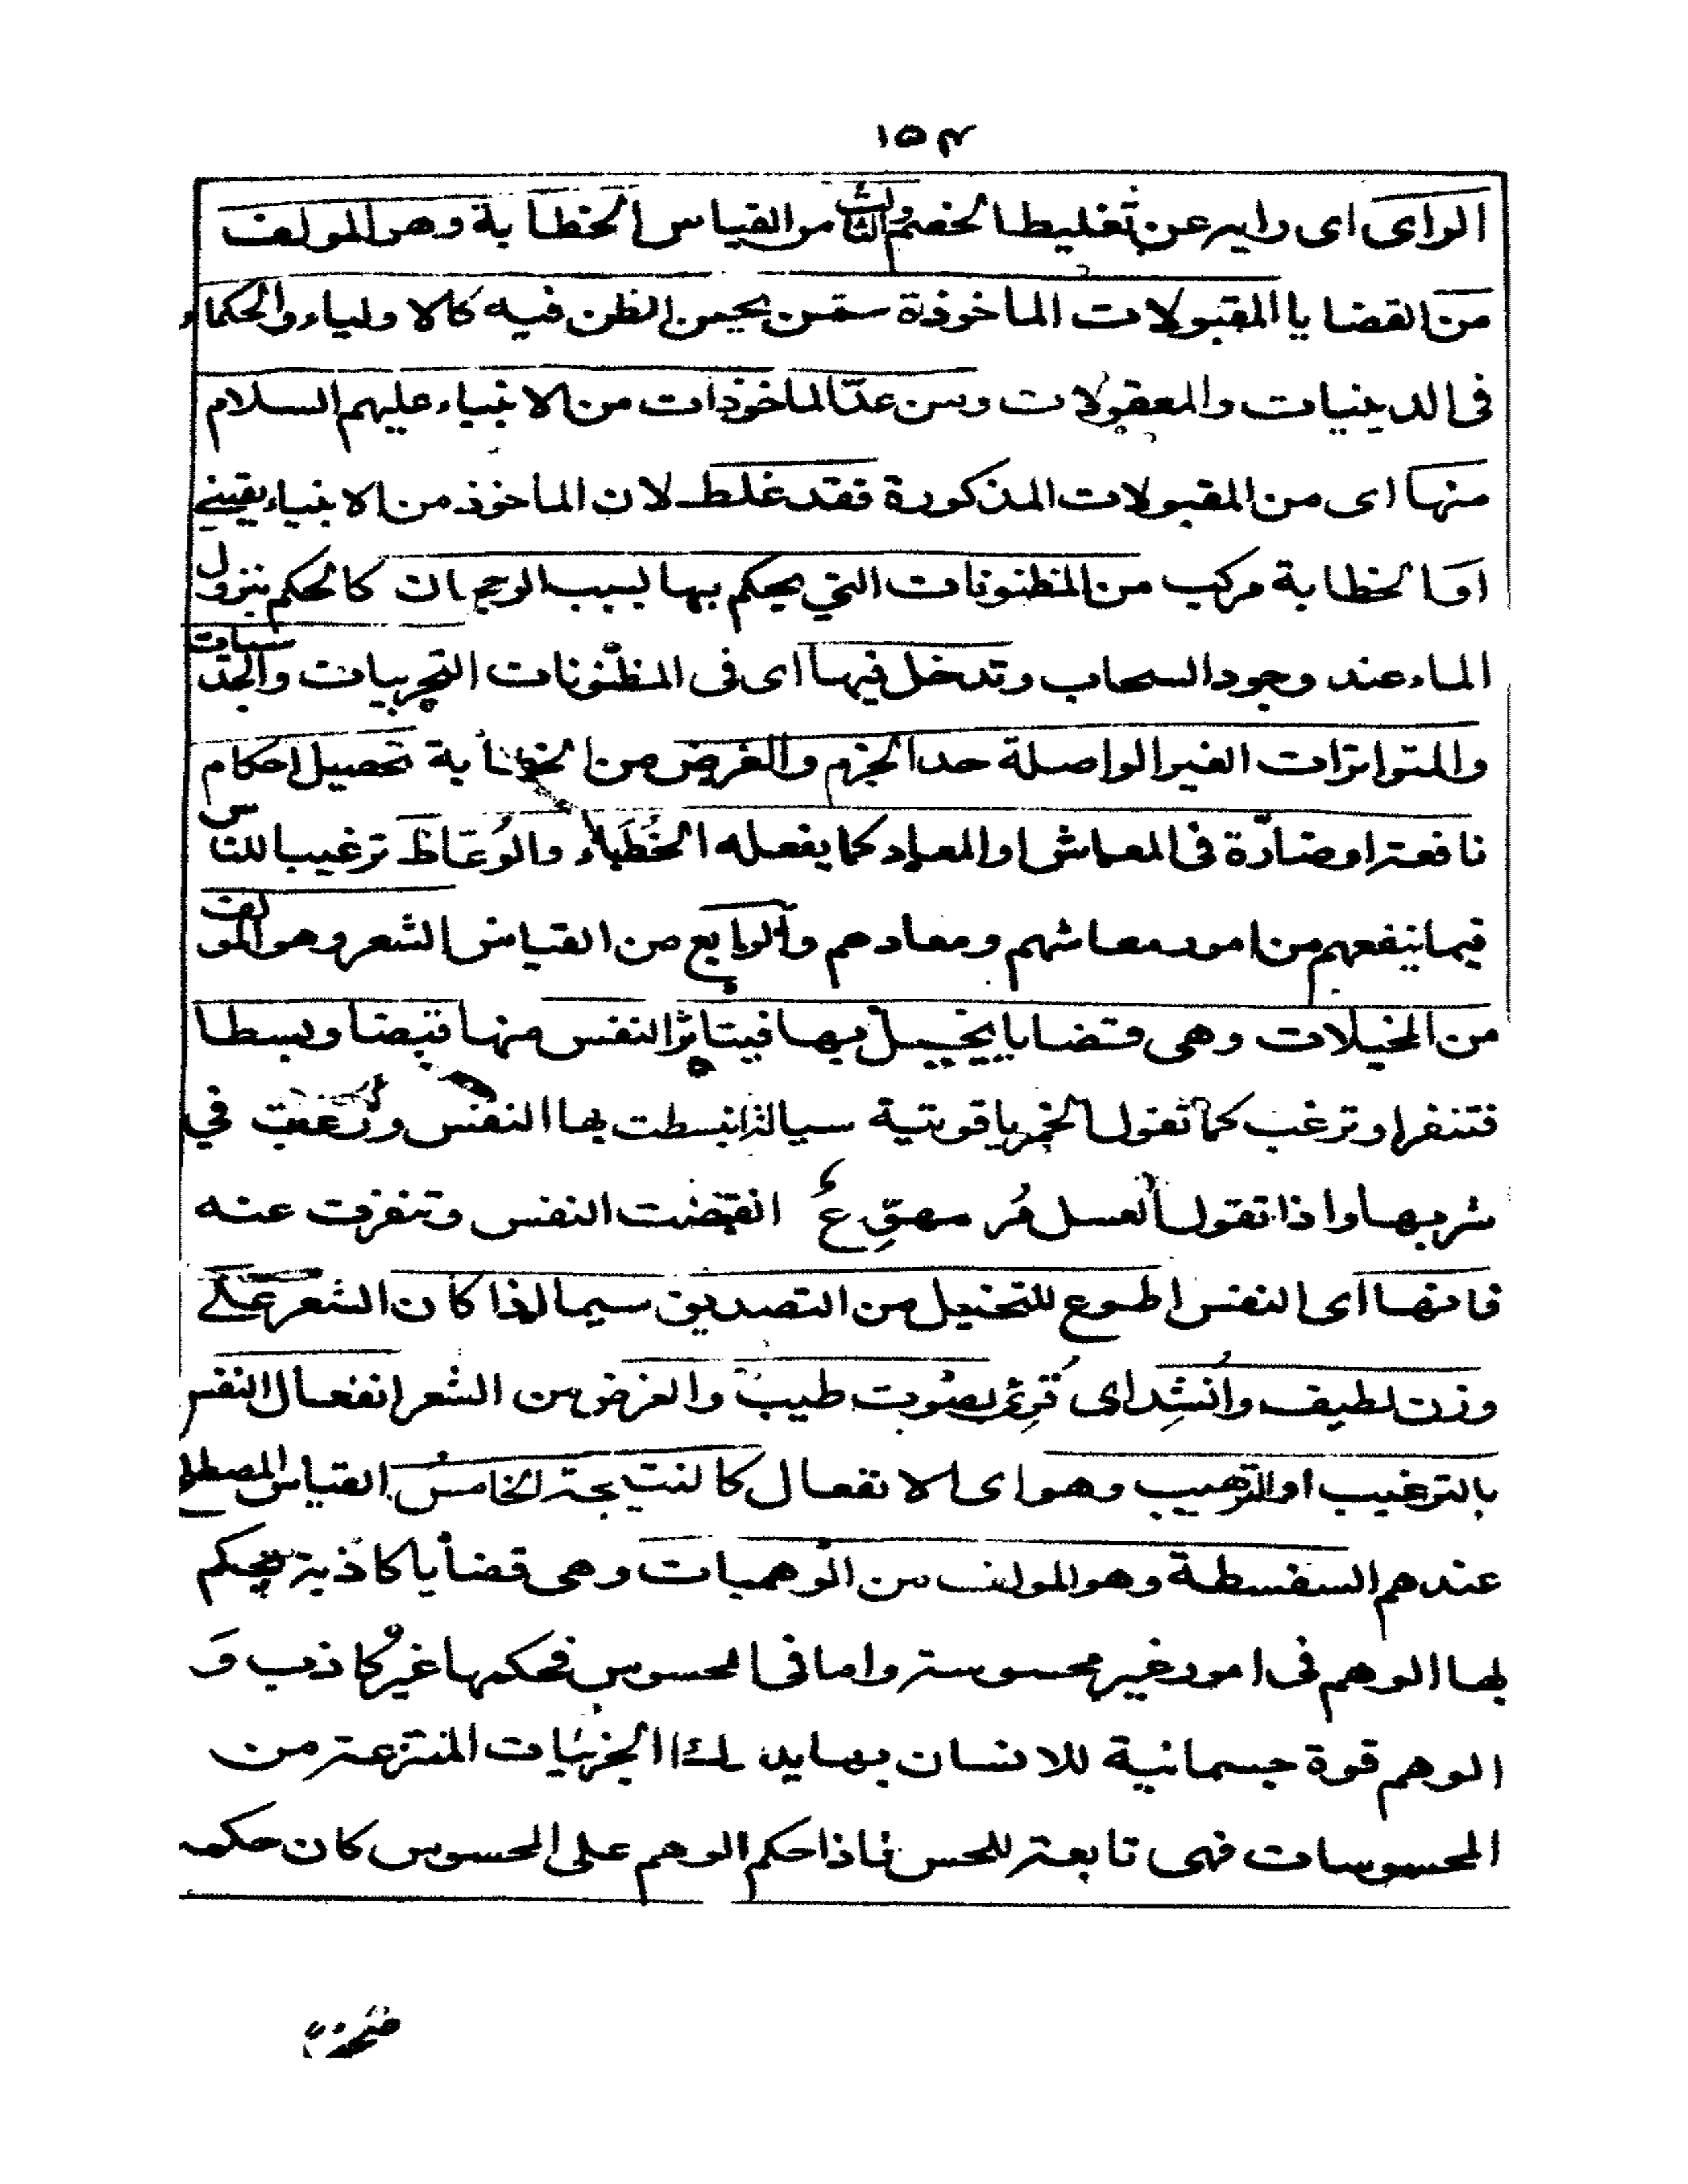 ١٥٤
الراى اى رايه عن تغليط الخصم والثالث من القياس الخطابة وهو المولف
من القضايا المقبولات الماخوذة ممن يحسن الظن فيه كالاولياء والحكماء
فى الدينيات والمعقولات ومن عدّ الماخوذات من الانبياء عليهم السلام
منها اى من المقبولات المذكورة فقد غلط لان الماخوذ من الانبياء يقينے
اما الخطابة مركب من المظنونات التي يحكم بها بسبب الرجحان كالحكم بنزول
الماء عند وجود السحاب وتدخل فيها اى فى المظنونات التجربيات والحدسيات
والمتواترات الغير الواصلة حد الجزم والغرض من الخطابة تحصيل احكام
نافعة او ضارّة فى المعاش او المعاد كما يفعله الخُطَباء والوُعّاظ ترغيبا للناس
فيما ينفعهم من امور معاشهم ومعادهم والرابع من القياس الشعر وهو المولف
من المخيلات وهى قضايا يخيل بها فيتاثر النفس منها قبضا وبسطا
فتنفر او ترغب كما تقول الخمر ياقوتية سيالة انبسطت بها النفس ورغبت في
شربها واذا تقول العسل مُر مهوّع انقبضت النفس وتنفرت عنه
فانها اى النفس اطوع للتخيل من التصديق سيما اذا كان الشعر علے
وزن لطيف وانُشِد اى قُرِئ بصوت طيب والغرض من الشعر انفعال النفس
بالترغيب او الترهيب وهو اى الانفعال كالنتيجة الخامس القياس المصطلح
عندهم السفسطة وهو المولف من الوهميات وهى قضايا كاذبة يحكم
بها الوهم فى امور غير محسوسة واما فى المحسوس فحكمها غير كاذب وَ
الوهم قوة جسمانية للانسان بها يدرك الجزئيات المنتزعة من
المحسوسات فهى تابعة للحس فاذا حكم الوهم على المحسوس كان حكمه